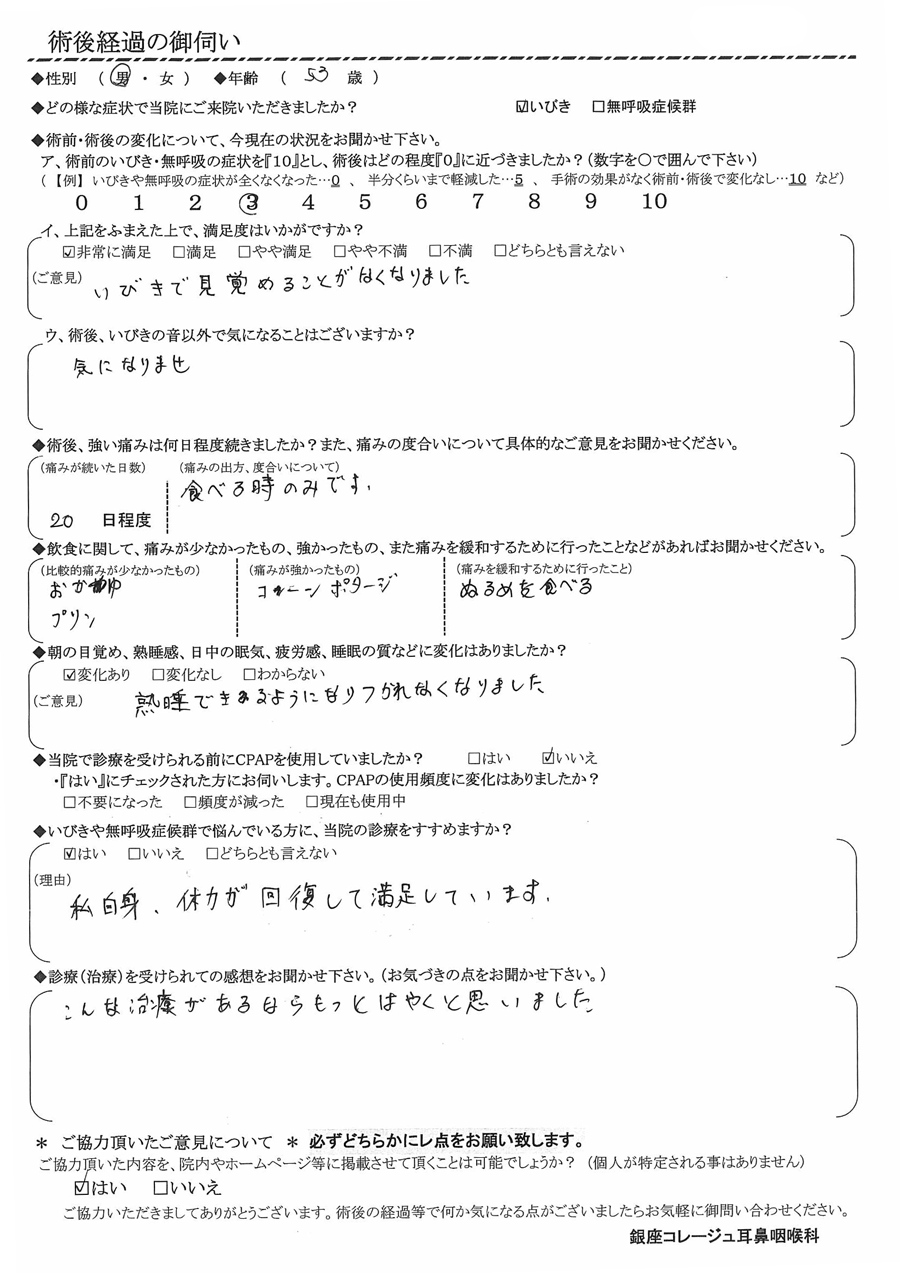 術後経過の御伺い
◆性別 ( 男 ・ 女 ) ◆年齢 ( 53 歳 )
◆どの様な症状で当院にご来院いただきましたか? ☑いびき □無呼吸症候群
◆術前・術後の変化について、今現在の状況をお聞かせ下さい。
ア、術前のいびき・無呼吸の症状を『10』とし、術後はどの程度『0』に近づきましたか?(数字を〇で囲んで下さい)
(【例】 いびきや無呼吸の症状が全くなくなった…0 、 半分くらいまで軽減した…5 、 手術の効果がなく術前・術後で変化なし…10 など)
0 1 2 3 4 5 6 7 8 9 10
イ、上記をふまえた上で、満足度はいかがですか?
☑非常に満足 □満足 □やや満足 □やや不満 □不満 □どちらとも言えない
(ご意見) いびきで見覚めることがなくなりました
ウ、術後、いびきの音以外で気になることはございますか?
気になりませ
◆術後、強い痛みは何日程度続きましたか?また、痛みの度合いについて具体的なご意見をお聞かせください。
(痛みが続いた日数) (痛みの出方、度合いについて)
食べる時のみです.
20 日程度
◆飲食に関して、痛みが少なかったもの、強かったもの、また痛みを緩和するために行ったことなどがあればお聞かせください。
(比較的痛みが少なかったもの) (痛みが強かったもの) (痛みを緩和するために行ったこと)
おかゆ コーンポタージ ぬるめを食べる
プリン
◆朝の目覚め、熟睡感、日中の眠気、疲労感、睡眠の質などに変化はありましたか?
☑変化あり □変化なし □わからない
(ご意見) 熟睡できるようになりつかれなくなりました
◆当院で診療を受けられる前にCPAPを使用していましたか? □はい ☑いいえ
・『はい』にチェックされた方にお伺いします。CPAPの使用頻度に変化はありましたか?
□不要になった □頻度が減った □現在も使用中
◆いびきや無呼吸症候群で悩んでいる方に、当院の診療をすすめますか?
☑はい □いいえ □どちらとも言えない
(理由)
私自身、体力が回復して満足しています.
◆診療(治療)を受けられての感想をお聞かせ下さい。(お気づきの点をお聞かせ下さい。)
こんな治療があるならもっとはやくと思いました
＊ ご協力頂いたご意見について ＊ 必ずどちらかにレ点をお願い致します。
ご協力頂いた内容を、院内やホームページ等に掲載させて頂くことは可能でしょうか? (個人が特定される事はありません)
☑はい □いいえ
ご協力いただきましてありがとうございます。術後の経過等で何か気になる点がございましたらお気軽に御問い合わせください。
銀座コレージュ耳鼻咽喉科